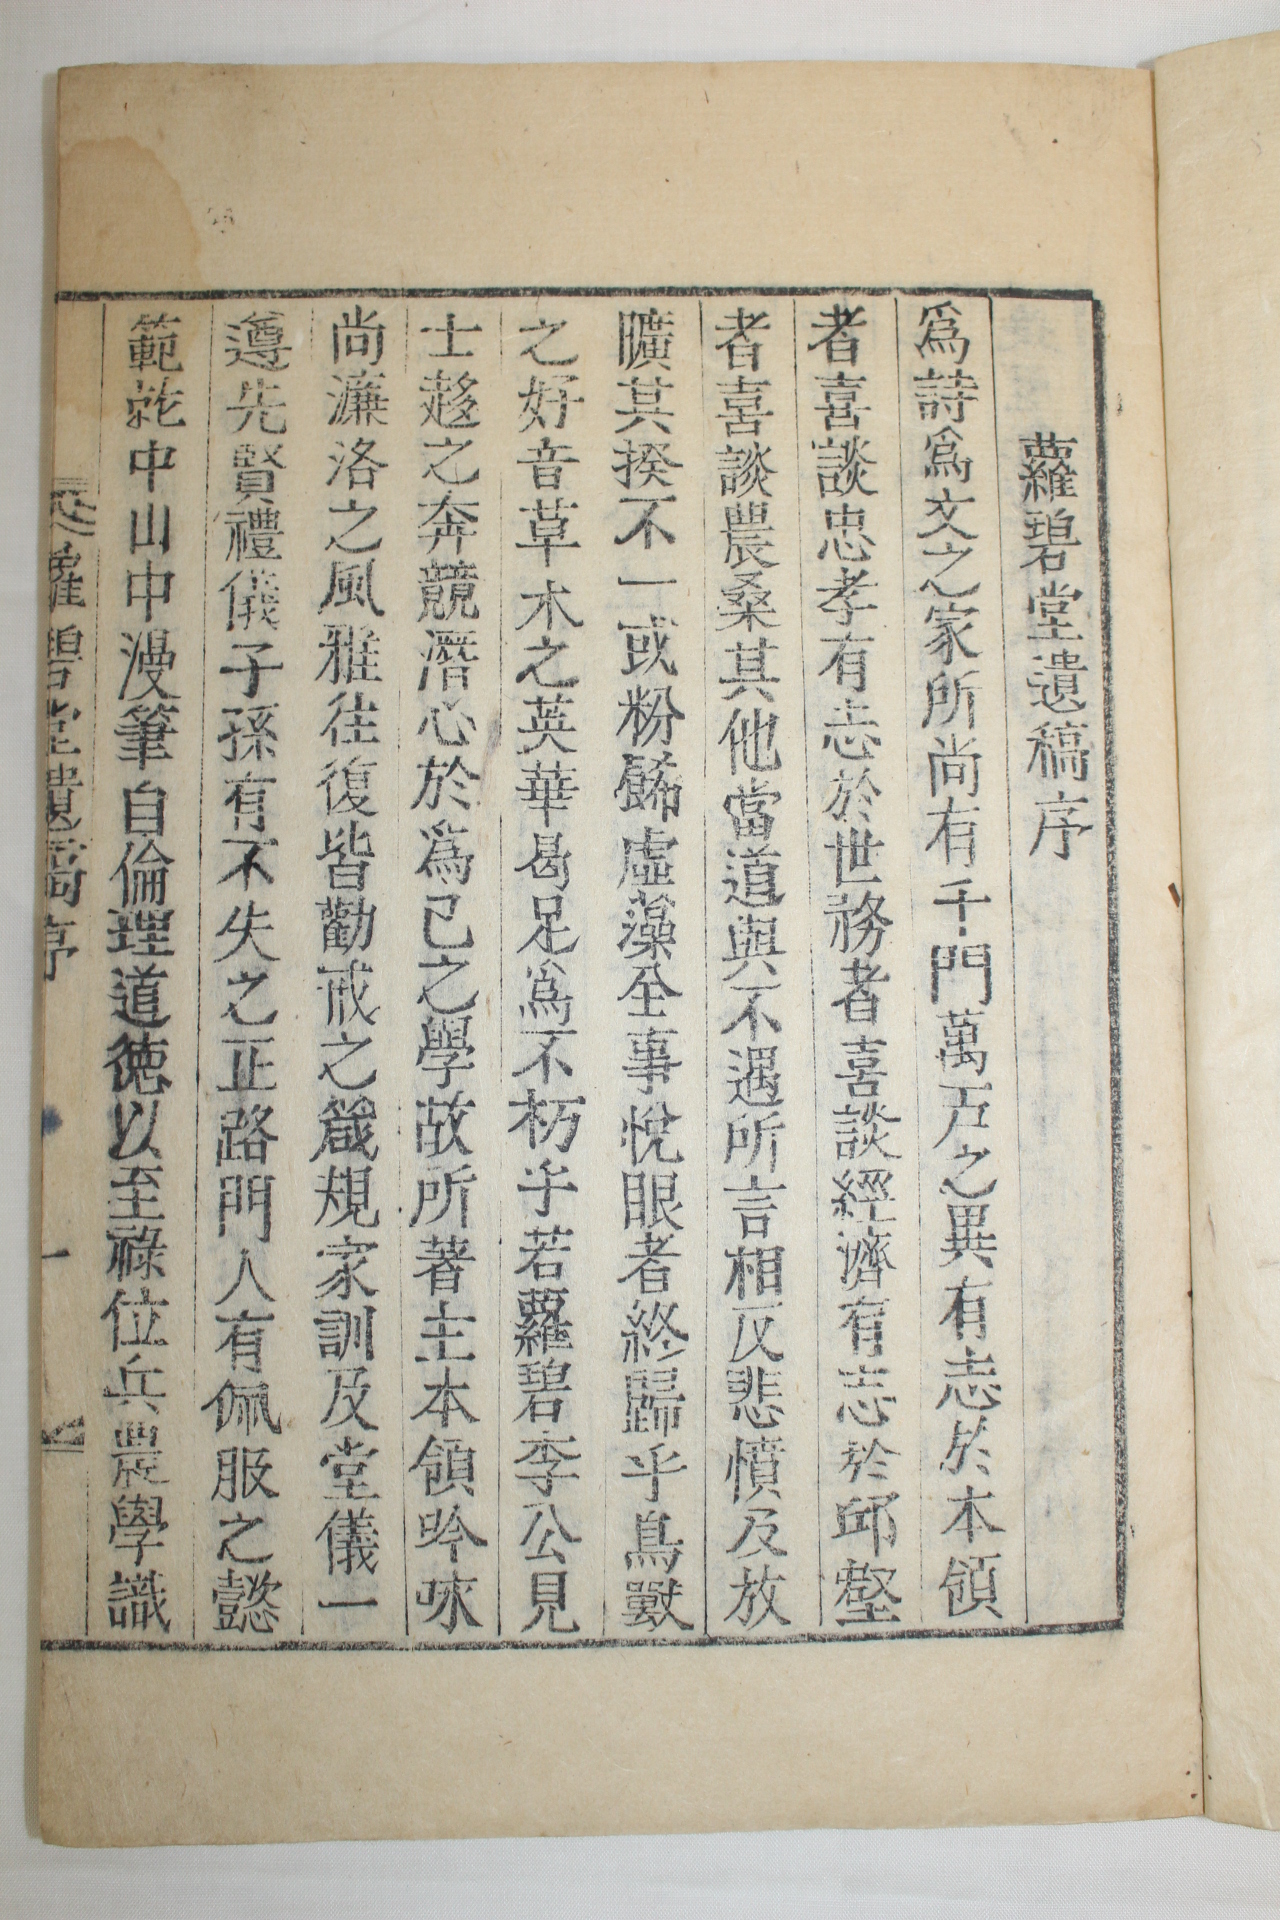 蘿碧堂遺稿序
爲詩爲文之家所尚有千門萬戶之異有志於本領
者喜談忠孝有志於世務者喜談經濟有志於邱壑
者喜談農桑其他當道與不遇所言相反悲憤及放
曠其揆不一或粉餙虛藻全事悅眼者終歸乎鳥獸
之好音草木之英華曷足爲不朽乎若蘿碧李公見
士趍之奔競潛心於爲己之學故所著主本領吟咏
尚濂洛之風雅往復皆勸戒之箴規家訓及堂儀一
遵先賢禮儀子孫有不失之正路門人有佩服之懿
範乾中山中漫筆自倫理道德以至祿位兵農學識
蘿碧堂遺稿序 一